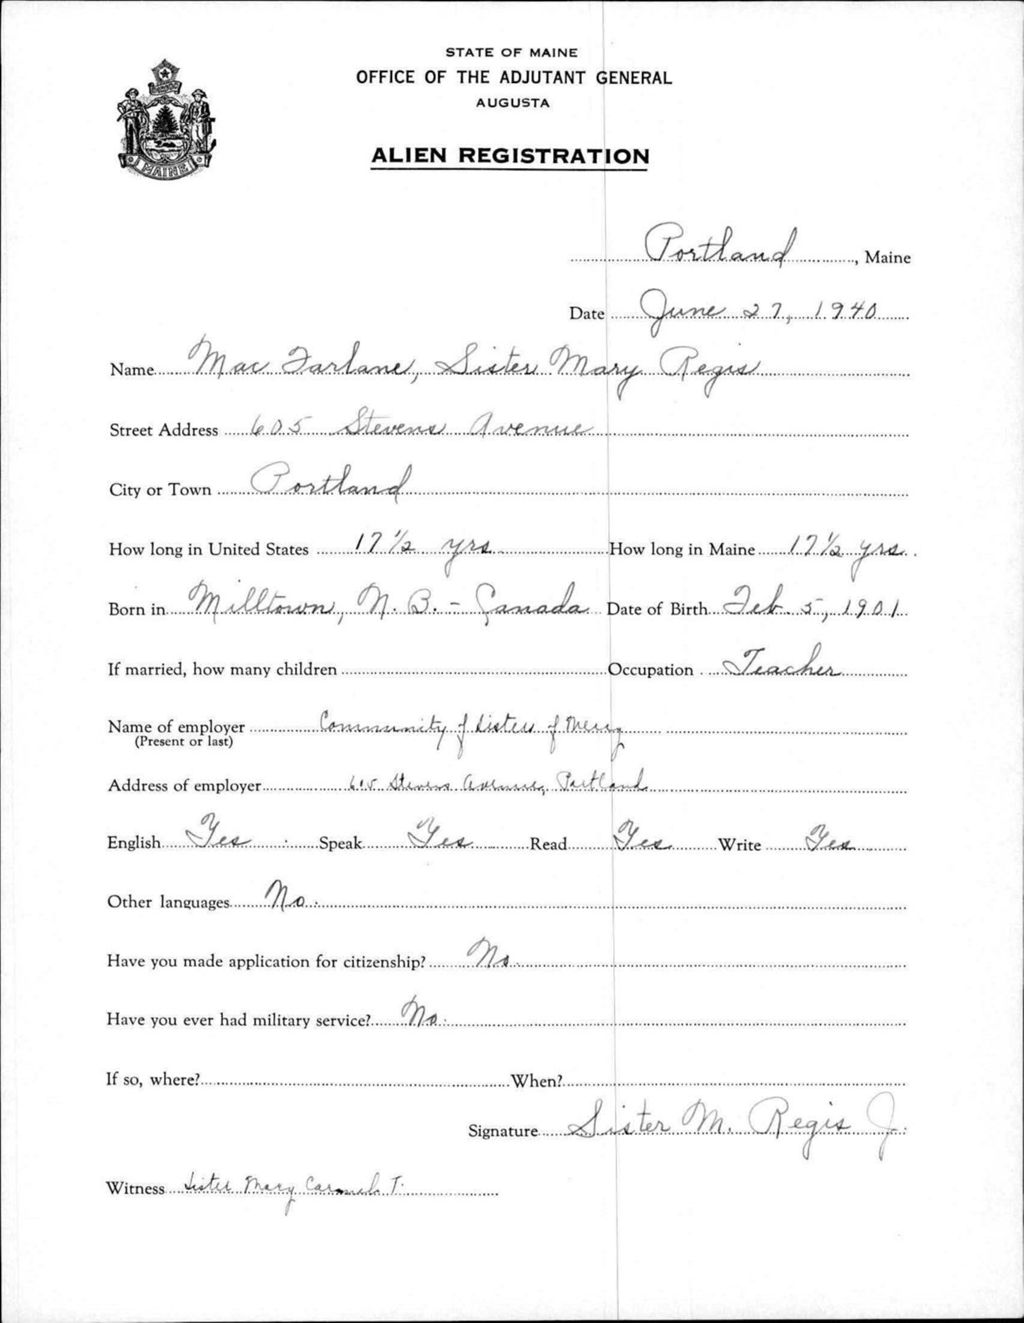 STATE OF MAINE
OFFICE OF THE ADJUTANT GENERAL
AUGUSTA
ALIEN REGISTRATION
MAINE
Portland, Maine
Date June 27, 1940
Name Mac Farlane, Sister Mary Regis
Street Address 605 Stevens Avenue
City or Town Portland
How long in United States 17 1/2 yrs How long in Maine 17 1/2 yrs.
Born in Milltown, N. B. - Canada Date of Birth Feb. 5, 1901
If married, how many children Occupation Teacher
Name of employer Community of Sisters of Mercy
(Present or last)
Address of employer 605 Stevens Avenue, Portland
English Yes Speak Yes Read Yes Write Yes
Other languages No.
Have you made application for citizenship? No.
Have you ever had military service? No.
If so, where? When?
Signature Sister M. Regis J.
Witness Sister Mary Carmela T.